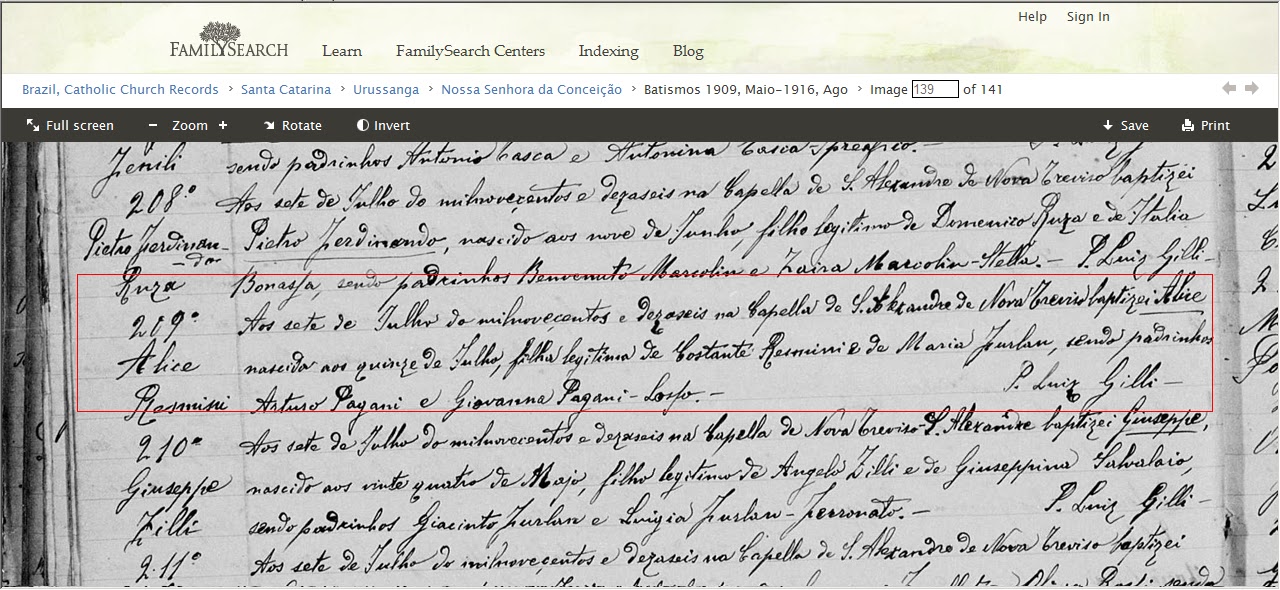 Help Sign In
FAMILYSEARCH Learn FamilySearch Centers Indexing Blog
Brazil, Catholic Church Records > Santa Catarina > Urussanga > Nossa Senhora da Conceição > Batismos 1909, Maio-1916, Ago > Image 139 of 141
Full screen − Zoom + Rotate Invert Save Print
Zenili sendo padrinhos Antonio Casca e Antonina Casca-Spreafico.—
208º Aos sete de Julho do milnovecentos e dezaseis na Capella de S. Alexandre de Nova Treviso baptizei
Pietro Ferdinan- Pietro Ferdinando, nascido aos nove de Junho, filho legitimo de Domenico Ruza e de Italia
-do-
Ruza Bonassa, sendo padrinhos Benvenuto Marcolin e Zaira Marcolin-Stella.— P. Luiz Gilli-
209º Aos sete de Julho do milnovecentos e dezaseis na Capella de S. Alexandre de Nova Treviso baptizei Alice
Alice nascida aos quinze de Julho, filha legitima de Costante Resmini e de Maria Furlan, sendo padrinhos
Resmini Arturo Pagani e Giovanna Pagani-Losso.— P. Luiz Gilli—
210º Aos sete de Julho do milnovecentos e dezaseis na Capella de Nova Treviso-S. Alexandre baptizei Giuseppe,
Giuseppe nascido aos vinte quatro de Majo, filho legitimo de Angelo Zilli e de Giuseppina Salvalaio,
Zilli sendo padrinhos Giacinto Furlan e Luigia Furlan-Ferronato.— P. Luiz Gilli-
211º Aos sete de Julho do milnovecentos e dezaseis na Capella de S. Alexandre de Nova Treviso baptizei